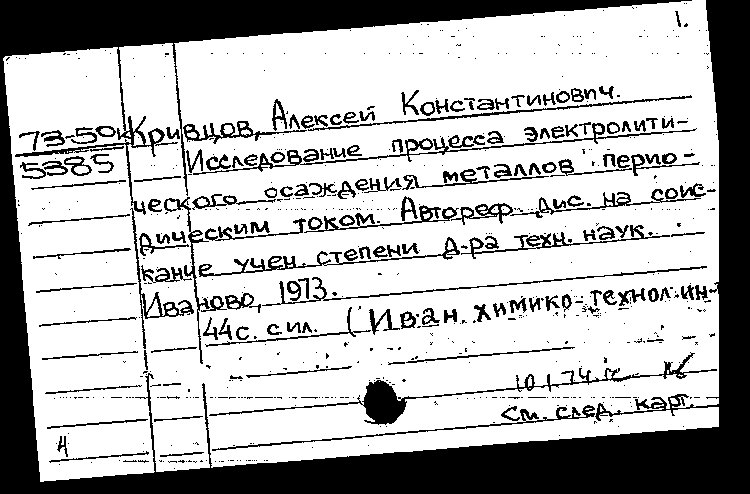 1.
73-50к Кривцов, Алексей Константинович.
5385 Исследование процесса электролити-
ческого осаждения металлов перио-
дическим током. Автореф. дис. на соис-
кание учен. степени д-ра техн. наук.
Иваново, 1973.
44с. с ил. (Иван. химико-технол. ин-
10.1.74.
См. след. карт.